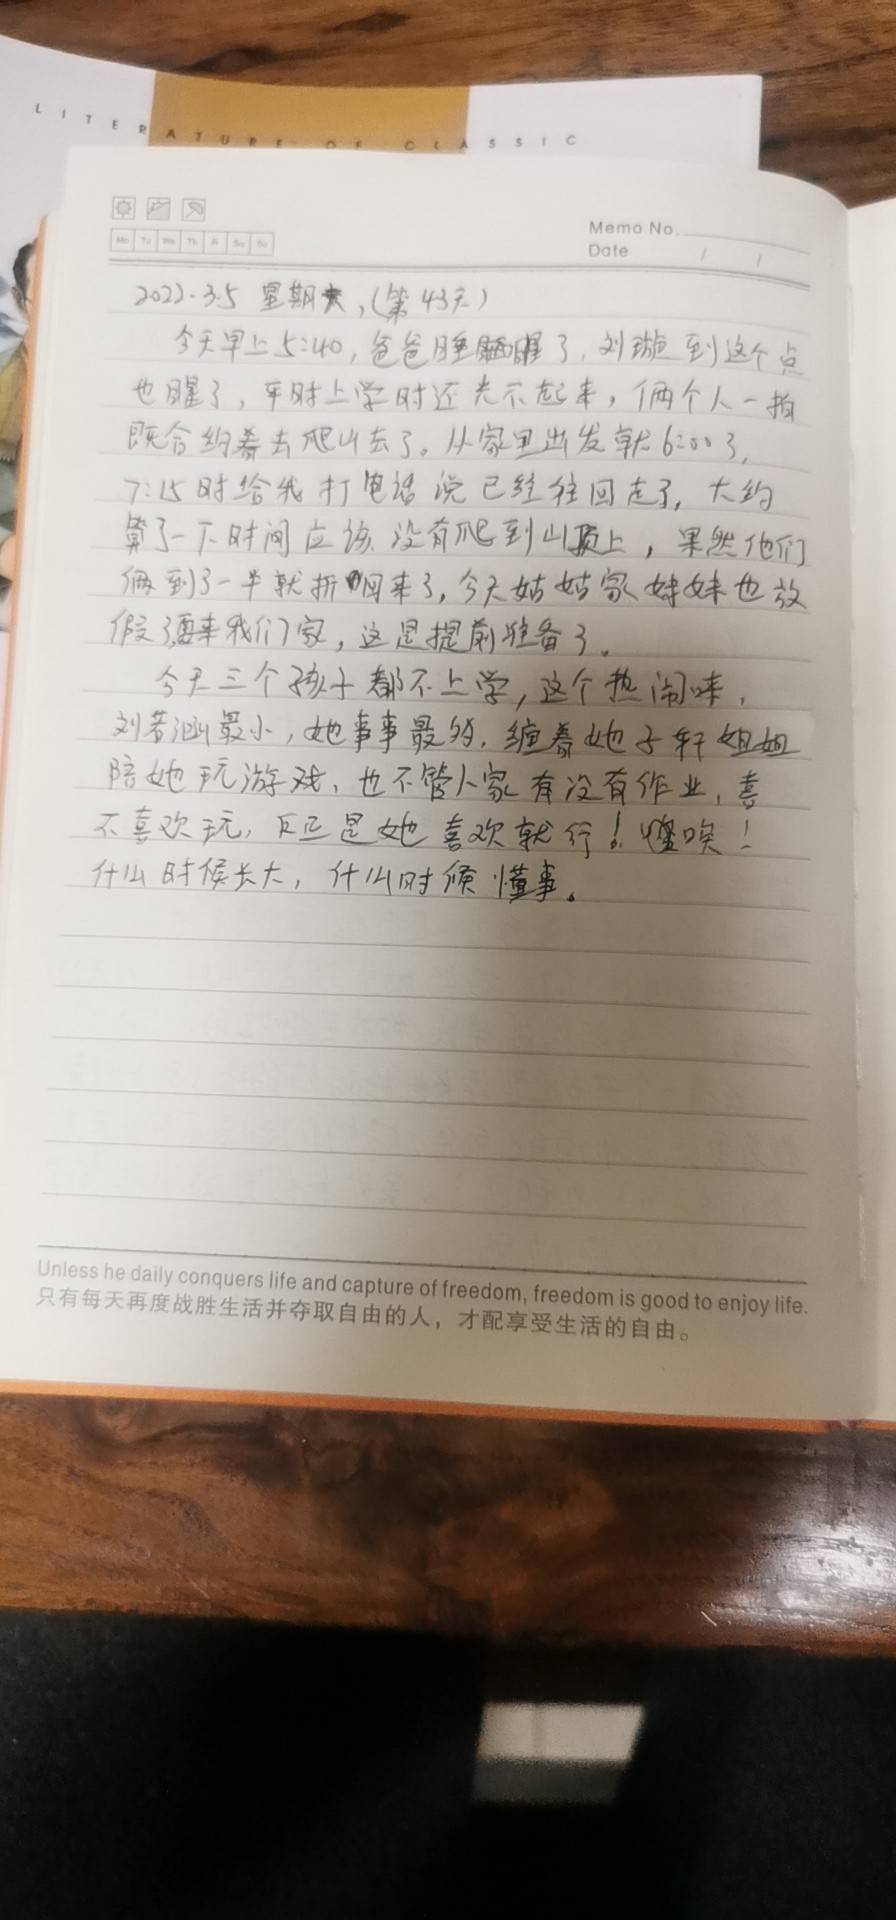 LITERATURE OF CLASSIC
Mo Tu We Th Fr Sa Su
Memo No.
Date / /
2022.3.5 星期六,(第43天)
今天早上5:40,爸爸睡醒了,刘璇到这个点
也醒了,平时上学时还光不起来,俩个人一拍
既合约着去爬山去了。从家里出发就6:00了,
7:15时给我打电话说已经往回走了,大约
算了一下时间应该没有爬到山顶上,果然他们
俩到了一半就折回来了,今天姑姑家妹妹也放
假了要来我们家,这是提前准备了。
今天三个孩子都不上学,这个热闹味,
刘若涵最小,她事事最多,缠着她子轩姐姐
陪她玩游戏,也不管人家有没有作业,喜
不喜欢玩,反正是她喜欢就行!唉!
什么时候长大,什么时候懂事。
Unless he daily conquers life and capture of freedom, freedom is good to enjoy life.
只有每天再度战胜生活并夺取自由的人,才配享受生活的自由。